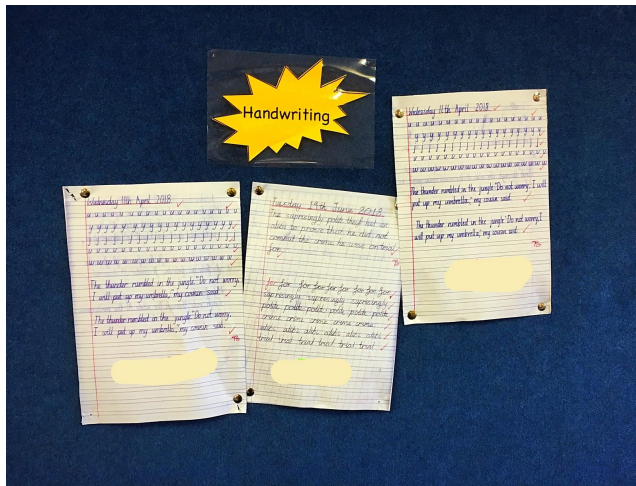 Handwriting
Wednesday 11th April 2018
u u u u u u u u u u u u u u u u
y y y y y y y y y y y y y y y y
j j j j j j j j j j j j j j j j
v v v v v v v v v v v v v v v v
w w w w w w w w w w w w w w
The thunder rumbled in the jungle. "Do not worry,
I will put up my umbrella," my cousin said.
The thunder rumbled in the jungle. "Do not worry,
I will put up my umbrella," my cousin said.
Tuesday 19th June 2018
The suprisingly polit thief had an
alibi to prove that he did not
commit the crime he was on trial
for.
for for for for for for for for for
suprisingly suprisingly suprisingly
polite polite polite polite polite
crime crime crime crime crime
alibi alibi alibi alibi alibi
trial trial trial trial trial trial
Wednesday 11th April 2018
u u u u u u u u u u u u u u u
y y y y y y y y y y y y y y y
j j j j j j j j j j j j j j j
v v v v v v v v v v v v v v v
w w w w w w w w w w w w w
The thunder rumbled in the jungle. "Do not worry, I will
put up my umbrella," my cousin said.
The thunder rumbled in the jungle. "Do not worry, I
will put up my umbrella," my cousin said.